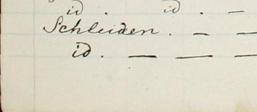 id. id. —
Schleiden. — —
id. — — —